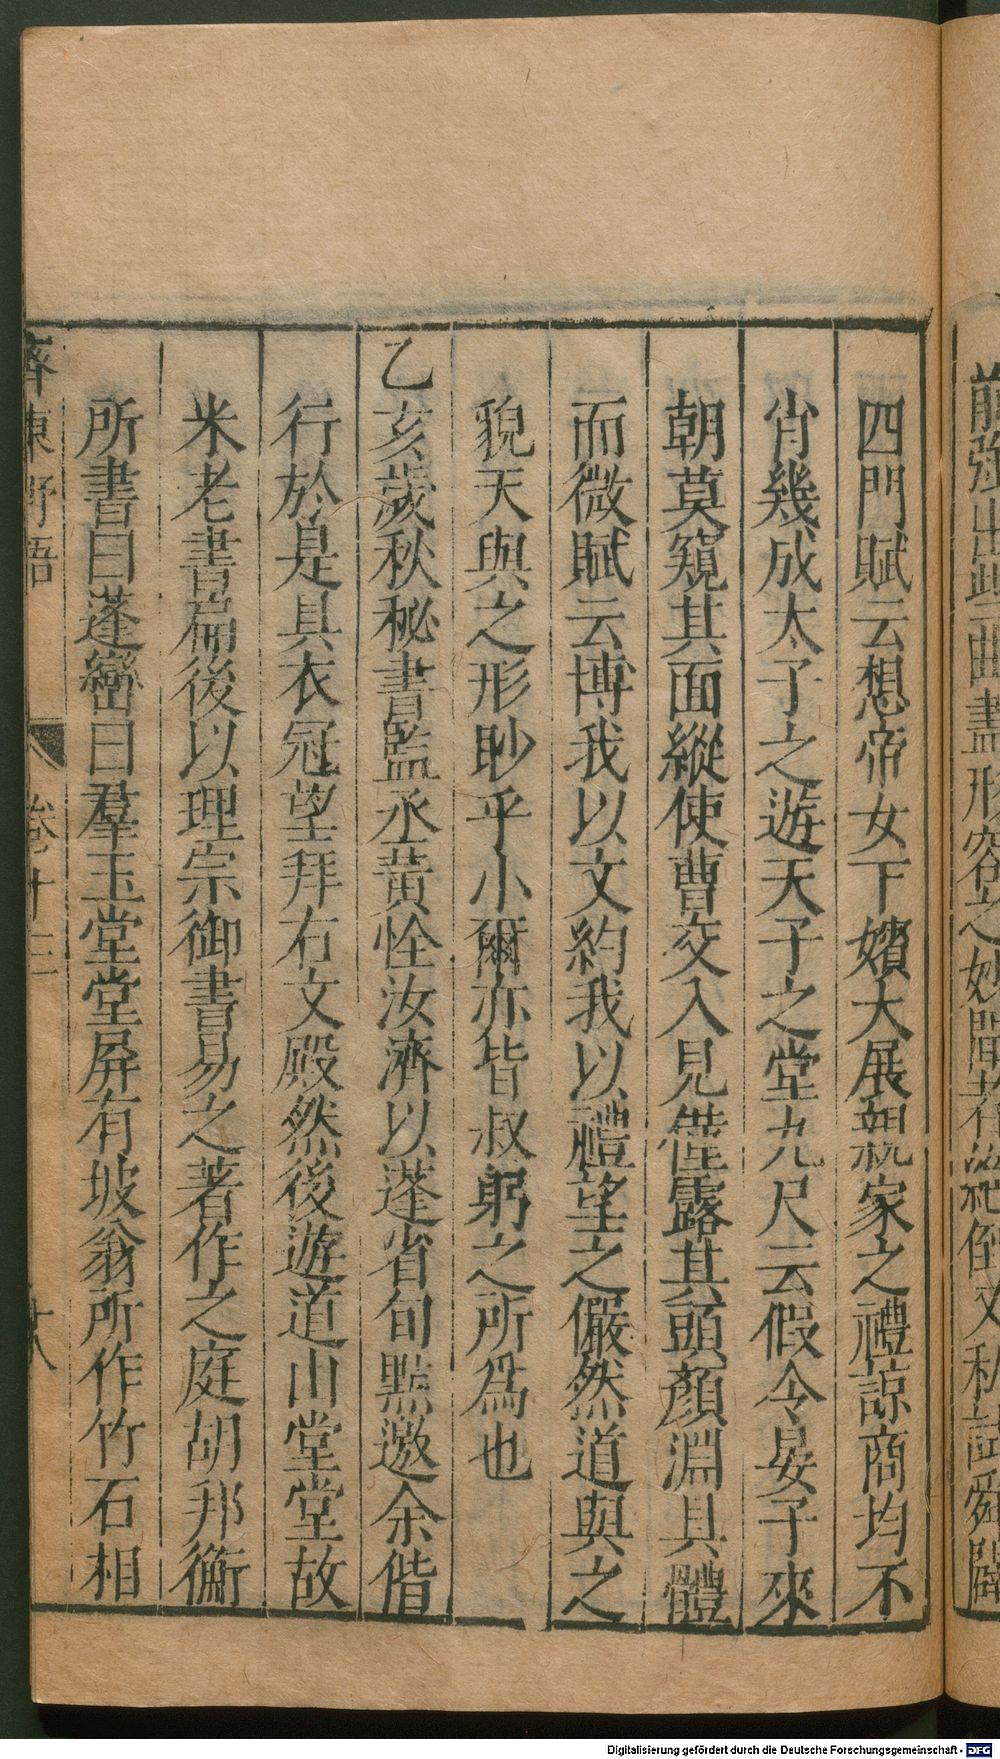 前強出些曲盡形容之妙聞者絕倒又私試舜闢
四門賦云想帝女下嬪大展親家之禮諒商均不
肖幾成太子之遊天子之堂九尺云假令晏子來
朝莫窺其面縱使曹交入見僅露其頭顏淵具體
而微賦云博我以文約我以禮望之儼然道與之
貌天與之形眇乎小爾亦皆叔躬之所爲也
乙亥歲秋秘書監丞黄恮汝濟以蓬省旬點邀余偕
行於是具衣冠望拜右文殿然後遊道山堂堂故
米老書扁後以理宗御書易之著作之庭胡邦衡
所書曰蓬巒曰羣玉堂堂屏有坡翁所作竹石相
齊東野語 卷十三 十八
Digitalisierung gefördert durch die Deutsche Forschungsgemeinschaft - DFG